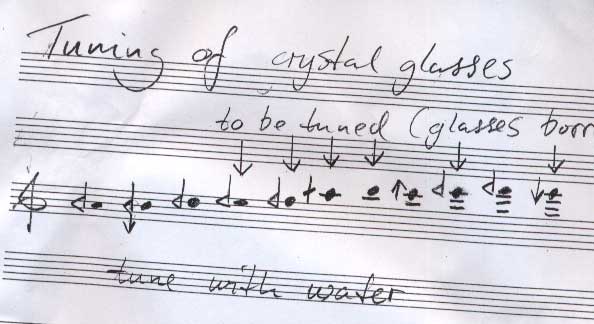 Tuning of crystal glasses
to be tuned (glasses borr
tune with water